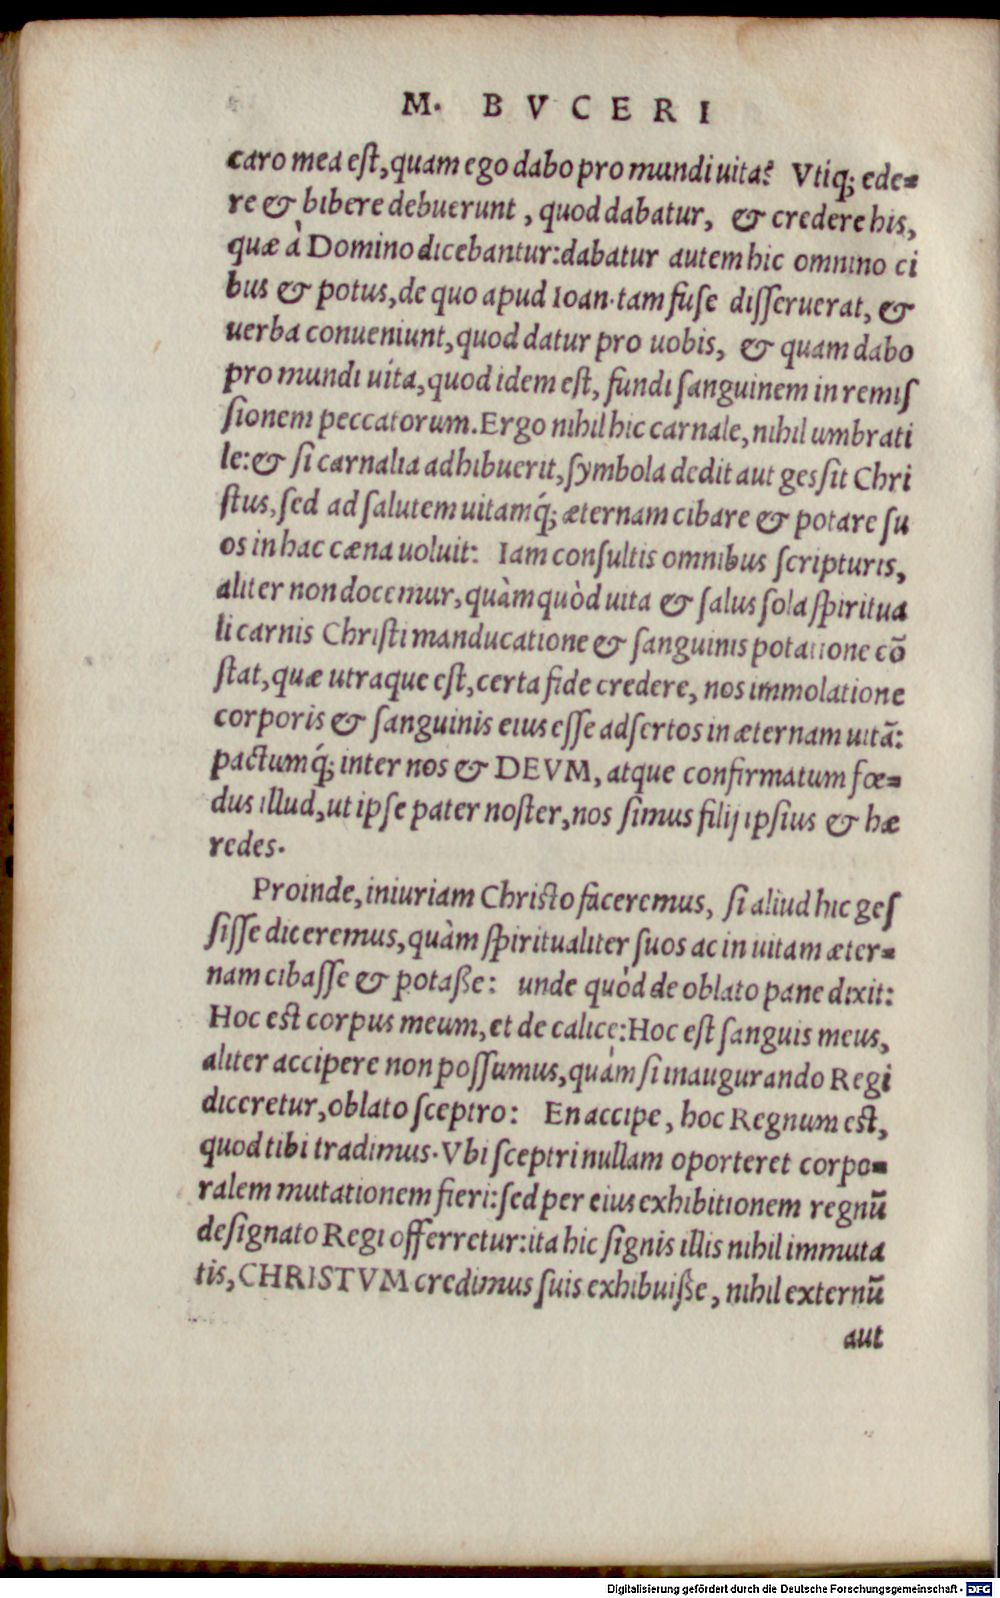 M. BVCERI
caro mea eſt, quam ego dabo pro mundi uita? Vtiq; ede-
re & bibere debuerunt, quod dabatur, & credere his,
quæ à Domino dicebantur: dabatur autem hic omnino ci
bus & potus, de quo apud Ioan. tam fuſe diſſeruerat, &
uerba conueniunt, quod datur pro uobis, & quam dabo
pro mundi uita, quod idem eſt, fundi ſanguinem in remiſ
ſionem peccatorum. Ergo nihil hic carnale, nihil umbrati
le: & ſi carnalia adhibuerit, ſymbola dedit aut gesſit Chri
ſtus, ſed ad ſalutem uitamq́; æternam cibare & potare ſu
os in hac cæna uoluit: Iam conſultis omnibus ſcripturis,
aliter non docemur, quàm quòd uita & ſalus ſola ſpiritua
li carnis Chriſti manducatione & ſanguinis potatione cõ
ſtat, quæ utraque eſt, certa fide credere, nos immolatione
corporis & ſanguinis eius eſſe adſertos in æternam uitã:
pactumq́; inter nos & DEVM, atque confirmatum fœ-
dus illud, ut ipſe pater noſter, nos ſimus filij ipſius & hæ
redes.
Proinde, iniuriam Chriſto faceremus, ſi aliud hic geſ
ſiſſe diceremus, quàm ſpiritualiter ſuos ac in uitam æter-
nam cibaſſe & potaße: unde quòd de oblato pane dixit:
Hoc eſt corpus meum, et de calice: Hoc eſt ſanguis meus,
aliter accipere non poſſumus, quàm ſi inaugurando Regi
diceretur, oblato ſceptro: En accipe, hoc Regnum eſt,
quod tibi tradimus. Vbi ſceptri nullam oporteret corpo-
ralem mutationem fieri: ſed per eius exhibitionem regnũ
deſignato Regi offerretur: ita hic ſignis illis nihil immuta
tis, CHRISTVM credimus ſuis exhibuiße, nihil externũ
aut
Digitalisierung gefördert durch die Deutsche Forschungsgemeinschaft - DFG